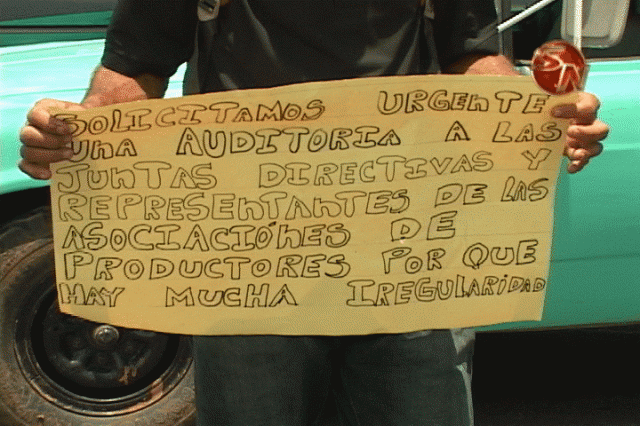 SOLICITAMOS URGENTE
UNA AUDITORIA A LAS
JUNTAS DIRECTIVAS Y
REPRESENTANTES DE LAS
ASOCIACIÓNES DE
PRODUCTORES POR QUE
HAY MUCHA IREGULARIDAD